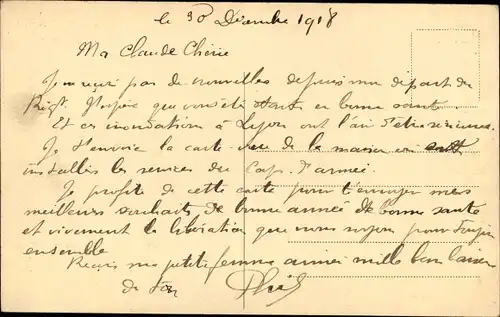 le 30 Décembre 1918
Ma Claude Chérie
Je n'ai pas de nouvelles depuis mon départ de
que vous êtes en bonne santé.
Et ces inondations à Lyon ont l'air d'être sérieuses.
Je t'envoie la carte vue de la maison où sont
installés les services du Corps d'armée.
Je profite de cette carte pour t'envoyer mes
meilleurs souhaits de bonne année de bonne santé
et vivement la libération que nous soyons pour toujours
ensemble
Reçois ma petite femme aimée mille bons baisers
de ton